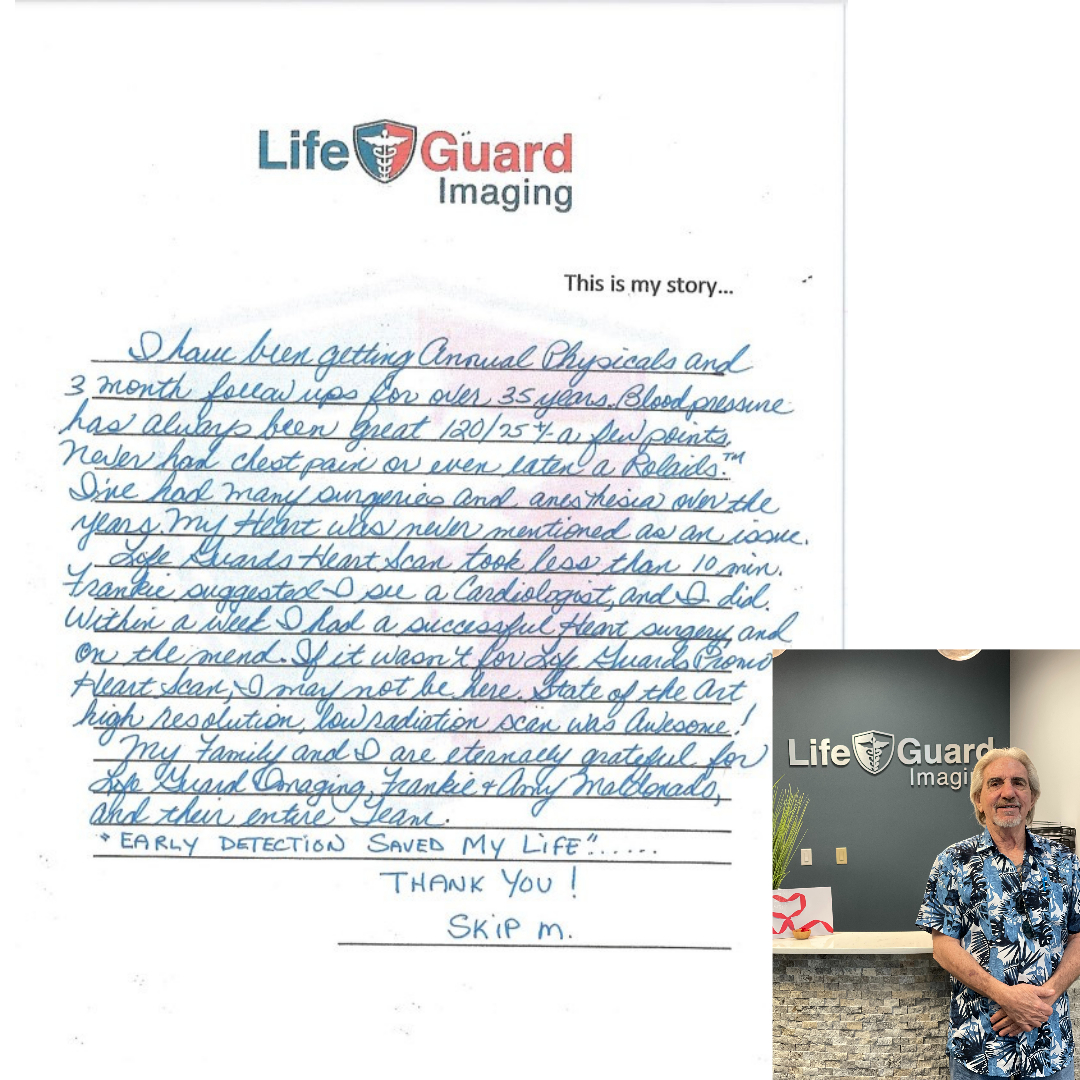 Life Guard
Imaging
This is my story...
I have been getting Annual Physicals and
3 month follow ups for over 35 years. Blood pressure
has always been great 120/75 +/- a few points.
Never had chest pain or even eaten a Rolaids.™
I've had many surgeries and anesthesia over the
years. My Heart was never mentioned as an issue.
Life Guards Heart Scan took less than 10 min.
Frankie suggested I see a Cardiologist, and I did.
Within a week I had a successful Heart surgery, and
on the mend. If it wasn't for Life Guards Promo
Heart Scan, I may not be here. State of the Art
high resolution, low radiation scan was Awesome!
My Family and I are eternally grateful for
Life Guard Imaging, Frankie + Amy Maldonado,
and their entire Team.
"EARLY DETECTION SAVED MY LIFE"......
THANK YOU!
SKIP M.
Life Guard
Imagi